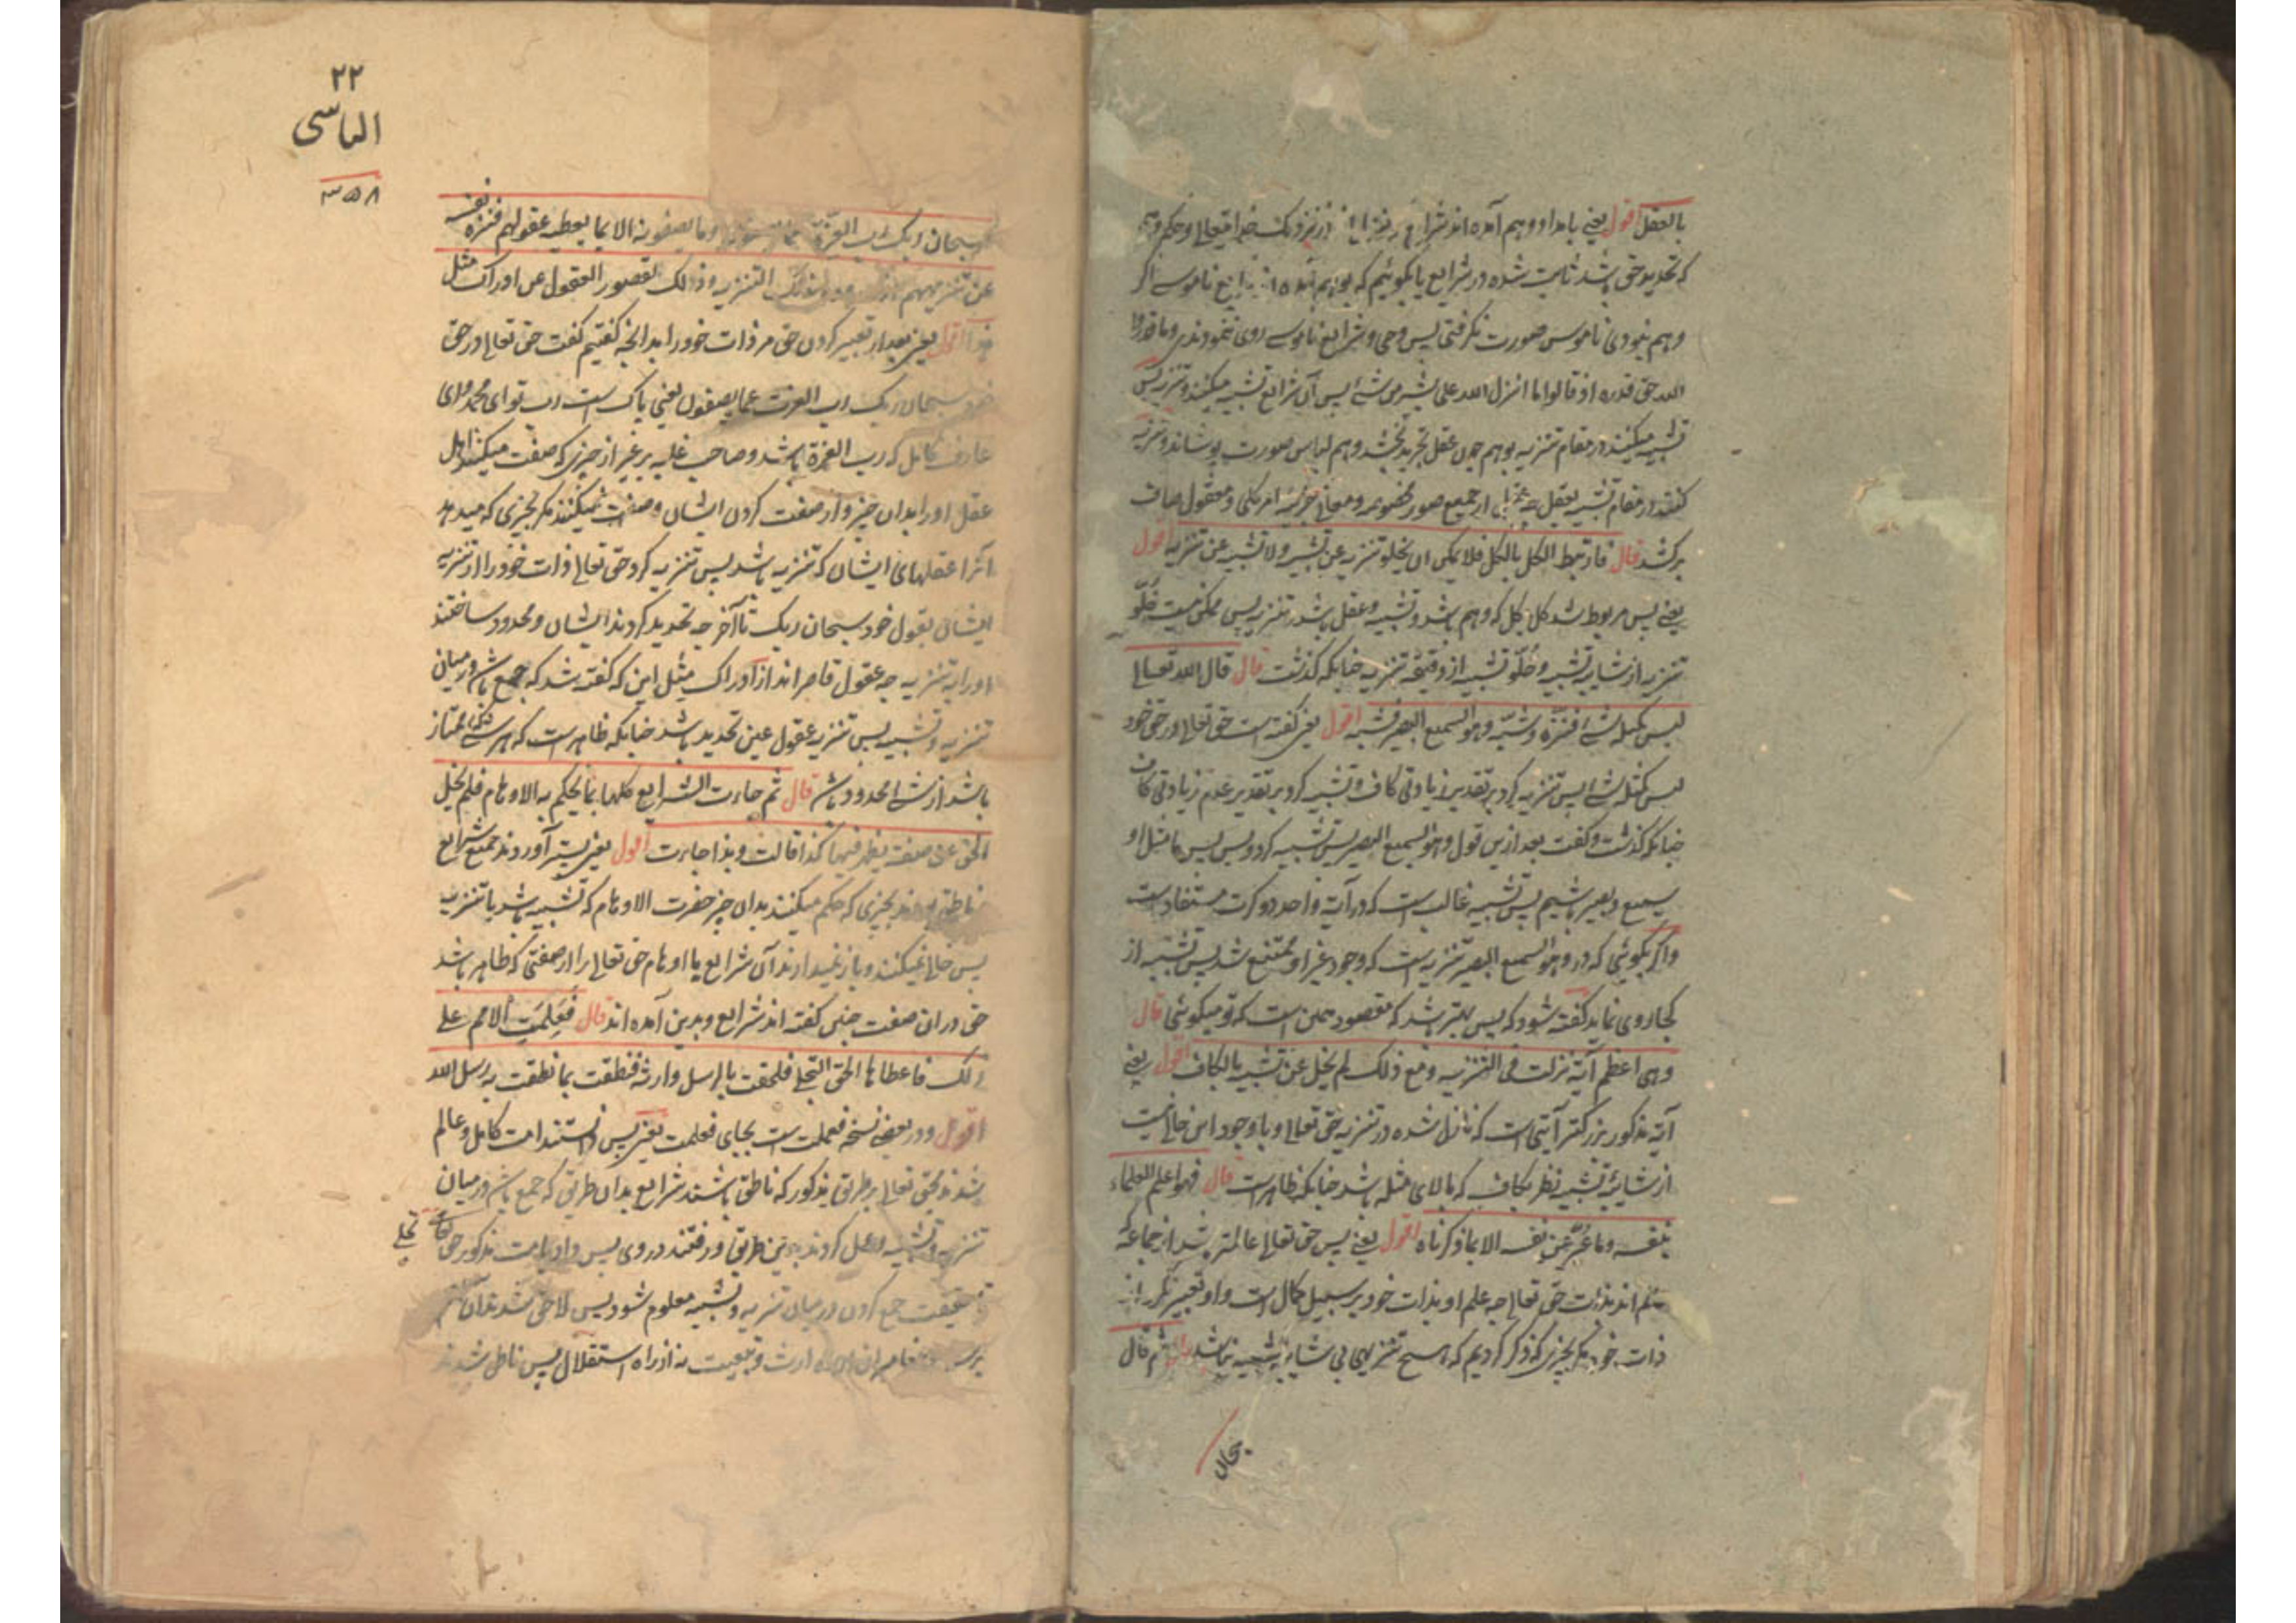 بالعقل اقول یعنی بامداد وهم آمده اند شرایع
که تحدید حق باشد ثابت شده در شرایع یا بگوئیم که
و هم نبودی ناموس صورت نگرفتی پس وحی و شرایع ناموسے روی ننمودندی وما قدروا
الله حق قدره اذ قالوا ما انزل الله علی بشر من شیء پس آن شرایع تشبیه میکنند در تنزیه پس
تشبیه میکنند در مقام تنزیه بوهم چون عقل تجرید بخشد وهم لباس صورت بپوشاند و تنزیه
کنند در مقام تشبیه بعقل چه عقل از جمیع صور و معانی جزئیه امر کلی و معقول صاف
برکشد قال فارتبط الکل بالکل فلا یمکن ان یخلو تنزیه عن تشبیه ولا تشبیه عن تنزیه اقول
یعنی پس مربوط شد کل بکل که وهم باشد و تشبیه و عقل باشد و تنزیه پس ممکن نیست خلوّ
تنزیه از شایبه تشبیه و خلوّ تشبیه از دقیقه تنزیه چنانکه گذشت قال قال الله تعالی
لیس کمثله شیء فنزّه و شبّه وهو السمیع البصیر فشبه اقول یعنی گفته است حق تعالی در حق خود
لیس کمثله شیء پس تنزیه کرد بر تقدیر زیادتی کاف و تشبیه کرد بر تقدیر عدم زیادتی کاف
چنانکه گذشت و گفت بعد ازین قول وهو السمیع البصیر پس تشبیه کرد و پس پس ما مثل او
سمیع و بصیر باشیم پس تشبیه غالب است که در آیه واحد دو کرت مستفاد است
و اگر بگوئی که در وهو السمیع البصیر تنزیه است که وجود غیر او ممتنع شد پس تشبیه از
کجا روی نماید گفته شود که پس بهتر باشد که مقصود همین است که تو میگوئی قال
وهی اعظم آیة نزلت فی التنزیه ومع ذلک لم یخل عن تشبیه بالکاف اقول یعنی
آیه مذکور بزرگتر آیتی است که نازل شده در تنزیه حق تعالی و با وجود این خالی نیست
از شایبهٔ تشبیه نظر بکاف که بالای مثله باشد چنانکه ظاهر است قال فهو اعلم العلماء
بنفسه وما عبّر عن نفسه الا بما ذکرناه اقول یعنی پس حق تعالی عالمتر باشد از جماعه که
عالم اند بذات حق تعالی چه علم او بذات خود بر سبیل کمال است و او تعبیر نکرد از
ذات خود مگر بچیزی که ذکر کردیم که هیچ تنزیهی بی شایبه تشبیه نباشد ثم قال
سبحان
۲۲
الماسی
۳۵۸
سبحان ربک رب العزّة عما یصفون وما یصفونه الا بما یعطیه عقولهم فنزه نفسه
عن تنزیههم اذ حددوه بذلک التنزیه وذلک لقصور العقول عن ادراک مثل
هذا اقول یعنی بعد از تعبیر کردن حق مر ذات خود را بدانچه گفتیم گفت حق تعالی در حق
خود سبحان ربک رب العزت عما یصفون یعنی پاک است رب تو ای محمد و ای
عارف کامل که رب العزة باشد و صاحب غلبه بر غیر از چیزی که صفت میکنند اهل
عقل او را بدان چیز و از صفت کردن ایشان و صفت نمیکنند مگر بچیزی که میدهد
آنرا عقلهای ایشان که تنزیه باشد پس تنزیه کرد حق تعالی ذات خود را از تنزیه
ایشان بقول خود سبحان ربک تا آخر چه تحدید کردند ایشان و محدود ساختند
او را به تنزیه چه عقول قاصر اند از ادراک مثل این که گفته شد که جمع باشد در میان
تنزیه و تشبیه پس تنزیه عقول عین تحدید باشد چنانکه ظاهر است که هر شیء که ممتاز
باشد از شیء محدود باشد قال ثم جاءت الشرایع کلها بما یحکم به الاوهام فلم یخل
الحق عن صفة یظهر فیها کذا قالت وبذا جاءت اقول یعنی پستر آوردند جمیع شرایع
ناطق بچیزی که حکم میکنند بدان چیز حضرت الاوهام که تشبیه باشد یا تنزیه
پس خالی نمیکنند و باز نمیدارند آن شرایع یا اوهام حق تعالی را از صفتی که ظاهر باشد
حق در ان صفت چنین گفته اند شرایع و بدین آمده اند قال فعلمت الامم علی
ذلک فاعطاها الحق التجلی فلحقت بالرسل وراثة فنطقت بما نطقت به رسل الله
اقول و در بعضی نسخه فعملت است بجای فعلمت یعنی پس دانستند امت کامل و عالم
شدند بحق تعالی بر طریق مذکور که ناطق باشند شرایع بدان طریق که جمع باشد در میان
تنزیه و تشبیه و عمل کردند بدین طریق و رفتند در وی پس داد بامت مذکور حق تعالی تجلی
حقیقت جمع کردن در میان تنزیه و تشبیه معلوم شود پس لاحق شدند آن امم
از راه ارث و تبعیت نه از راه استقلال پس ناطق شدند